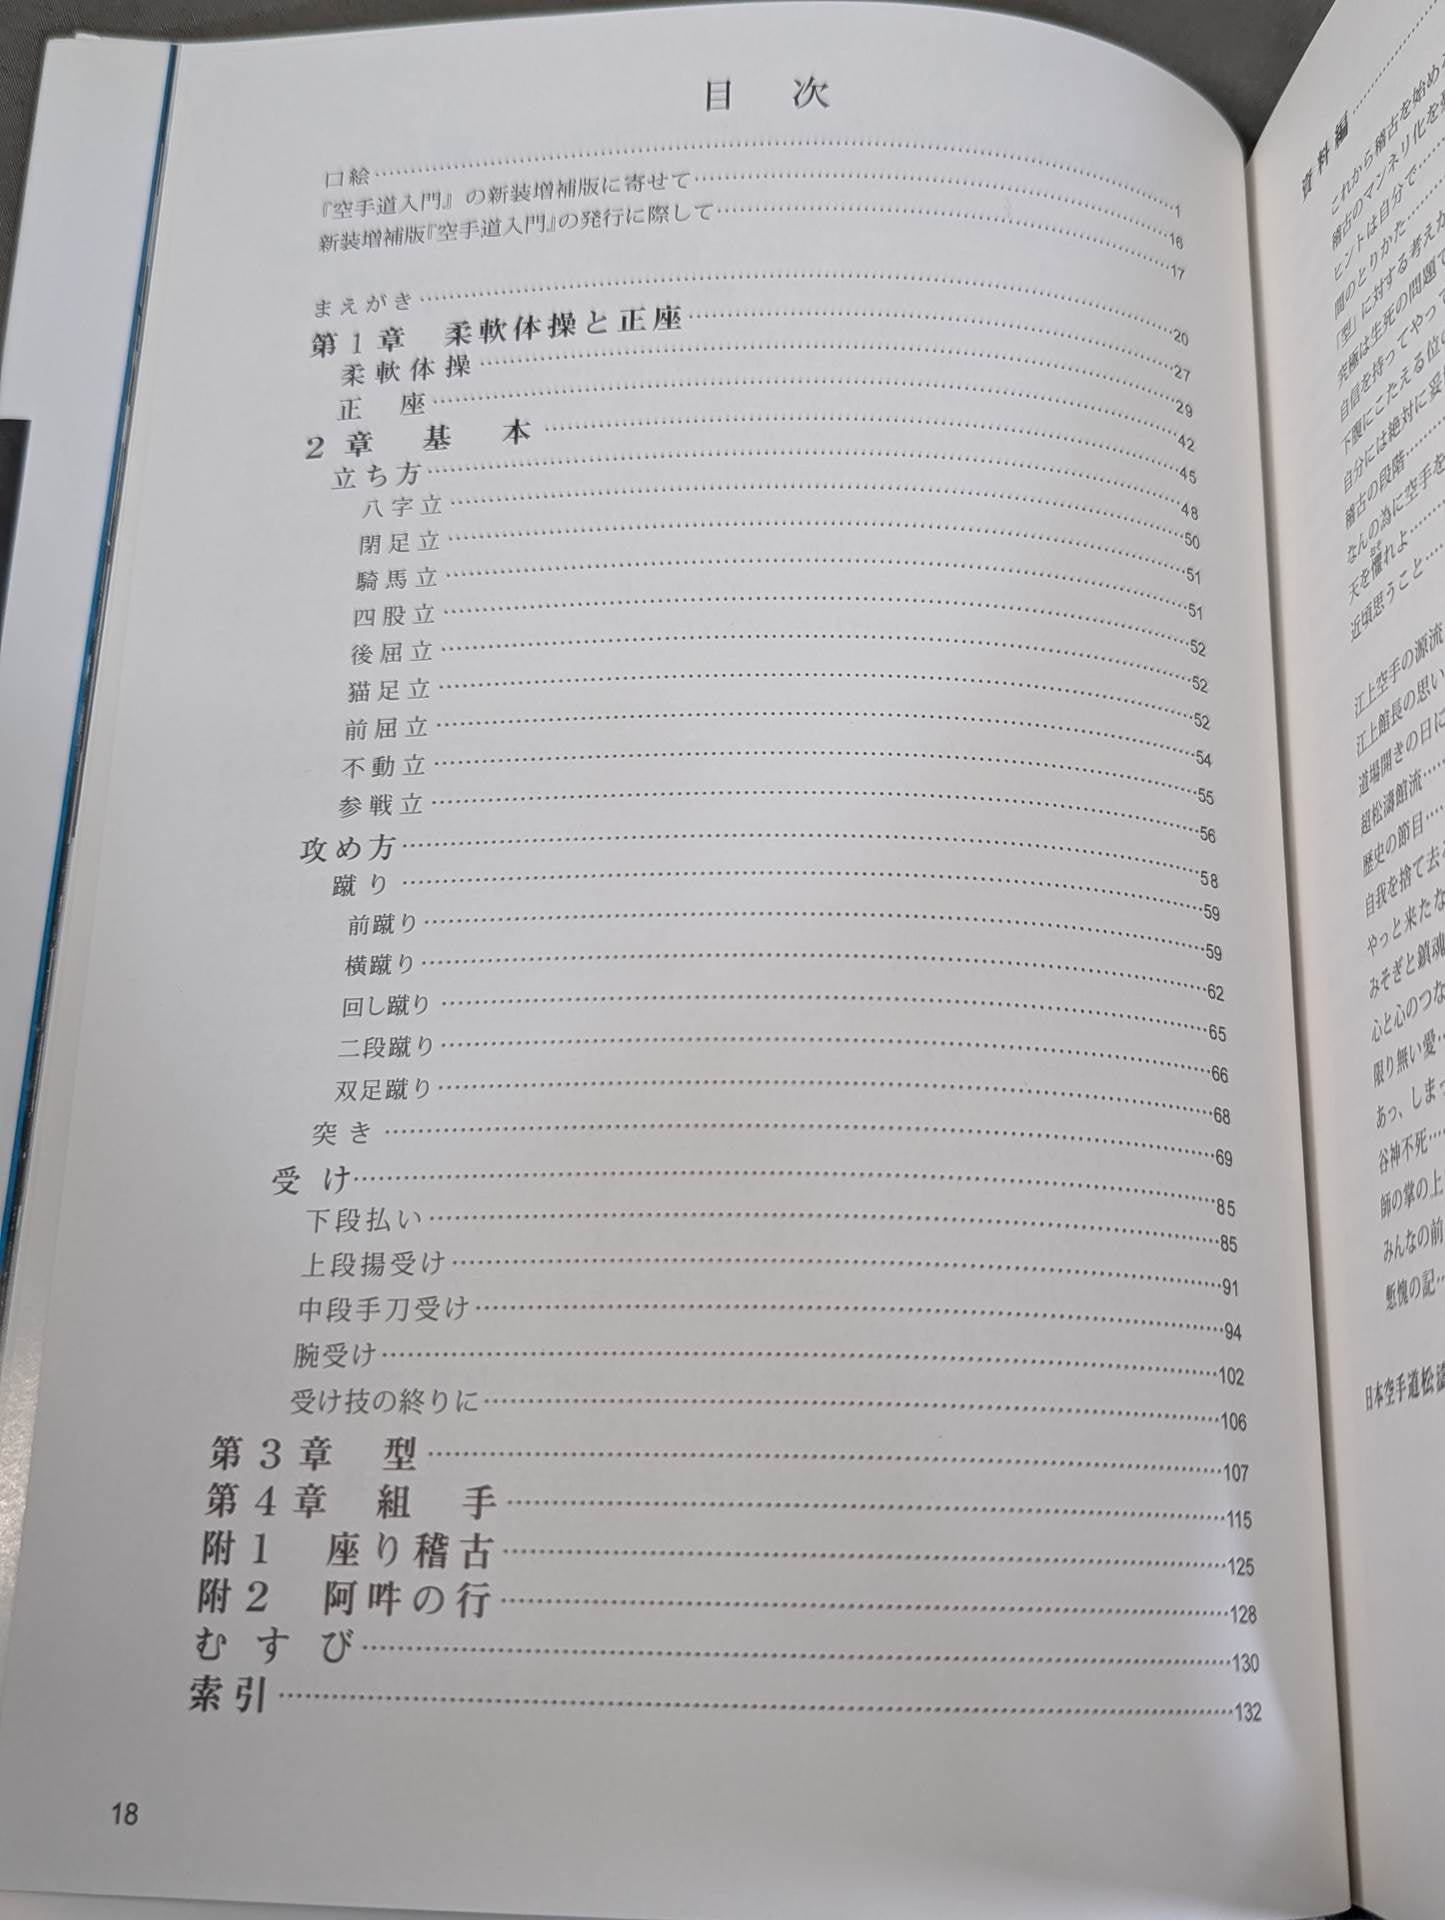 目 次
口絵……1
『空手道入門』の新装増補版に寄せて……16
新装増補版『空手道入門』の発行に際して……17
まえがき……20
第1章 柔軟体操と正座……27
柔軟体操……29
正 座……42
2章 基 本……45
立ち方……48
八字立……50
閉足立……51
騎馬立……51
四股立……52
後屈立……52
猫足立……52
前屈立……54
不動立……55
参戦立……56
攻め方……58
蹴り……59
前蹴り……59
横蹴り……62
回し蹴り……65
二段蹴り……66
双足蹴り……68
突き……69
受 け……85
下段払い……85
上段揚受け……91
中段手刀受け……94
腕受け……102
受け技の終りに……106
第3章 型……107
第4章 組 手……115
附1 座り稽古……125
附2 阿吽の行……128
むすび……130
索引……132
18
資料編……
これから稽古を始める
稽古のマンネリ化を
ヒントは自分で……
間のとりかた……
「型」に対する考え
究極は生死の問題で
自信を持ってやっ
下腹にこたえる位の
自分には絶対に妥
稽古の段階……
なんの為に空手を
天を懼れよ……
近頃思うこと……
江上空手の源流
江上館長の思い
道場開きの日に
超松濤館流……
歴史の節目……
自我を捨て去
やっと来たな
みそぎと鎮魂
心と心のつな
限り無い愛……
あっ、しまっ
谷神不死……
師の掌の上
みんなの前
慙愧の記……
日本空手道松濤